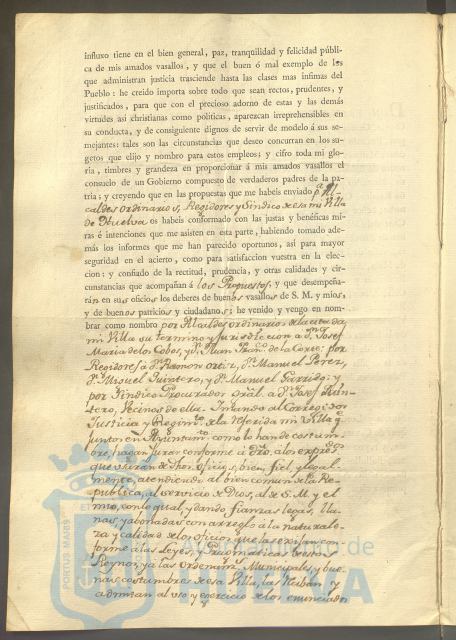 influxo tiene en el bien general, paz, tranquilidad y felicidad públi-
ca de mis amados vasallos, y que el buen ó mal exemplo de los
que administran justicia trasciende hasta las clases mas ínfimas del
Pueblo: he creido importa sobre todo que sean rectos, prudentes, y
justificados, para que con el precioso adorno de estas y las demás
virtudes así christianas como políticas, aparezcan irreprehensibles en
su conducta, y de consiguiente dignos de servir de modelo á sus se-
mejantes: tales son las circunstancias que deseo concurran en los su-
getos que elijo y nombro para estos empleos; y cifro toda mi glo-
ria, timbres y grandeza en proporcionar á mis amados vasallos el
consuelo de un Gobierno compuesto de verdaderos padres de la pa-
tria; y creyendo que en las propuestas que me habeis enviado pª Al-
caldes ordinarios, Regidores y Sindico de esa mi Villa
de Huelva os habeis conformado con las justas y benéficas mi-
ras é intenciones que me asisten en esta parte, habiendo tomado ade-
más los informes que me han parecido oportunos, así para mayor
seguridad en el acierto, como para satisfaccion vuestra en la elec-
cion; y confiado de la rectitud, prudencia, y otras calidades y cir-
cunstancias que acompañan á los Propuestos, y que desempeña-
rán en sus oficios los deberes de buenos vasallos de S. M. y mios,
y de buenos patricios y ciudadanos: he venido y vengo en nom-
brar como nombro por Alcaldes ordinarios de la citada
mi Villa su termino y Jurisdiccion a Dn. Josef
Maria de los Cobos, y Dn. Juan Franco. de la Corte: por
Regidores á Dn. Ramon Ortiz, Dn. Manuel Perez,
Dn. Miguel Quintero, y Dn. Manuel Garrido: y
por Sindico Procurador Gral. á Dn. Josef Quin-
tero, Vecinos de ella. I mando al Corregidor
Justicia y Regimto. de la referida mi Villa q.
juntos en Ayuntamto. como lo han de costum-
bre, hagan jurar conforme á dro. a los expresdos
que usarán de dhos. oficios, bien, fiel, y legal-
mente, atendiendo al bien comun de la Re-
publica, al servicio de Dios, al de S. M. y el
mio, con lo qual, y dando fianzas legas, lla-
nas, y abonadas con arreglo á la naturale-
za y calidad de los oficios que las exijan con-
forme á las Leyes, y Pragmaticas de estos
Reynos, y a las ordenanzs. Municipales, y bue-
nas costumbres de esa Villa, las reciban y
admitan al uso y exercicio de los enunciados
PORTUS MARIS
ET
Ayuntamiento de